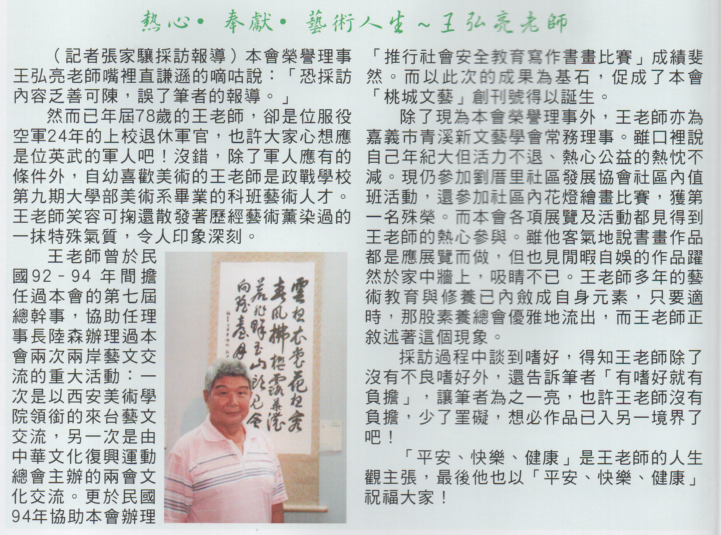 熱心•奉獻•藝術人生～王弘亮老師
（記者張家驤採訪報導）本會榮譽理事
王弘亮老師嘴裡直謙遜的嘀咕說：「恐採訪
內容乏善可陳，誤了筆者的報導。」
然而已年屆78歲的王老師，卻是位服役
空軍24年的上校退休軍官，也許大家心想應
是位英武的軍人吧！沒錯，除了軍人應有的
條件外，自幼喜歡美術的王老師是政戰學校
第九期大學部美術系畢業的科班藝術人才。
王老師笑容可掬還散發著歷經藝術薰染過的
一抹特殊氣質，令人印象深刻。
王老師曾於民
國92-94年間擔
任過本會的第七屆
總幹事，協助任理
事長陸森辦理過本
會兩次兩岸藝文交
流的重大活動：一
次是以西安美術學
院領銜的來台藝文
交流，另一次是由
中華文化復興運動
總會主辦的兩會文
化交流。更於民國
94年協助本會辦理
「推行社會安全教育寫作書畫比賽」成績斐
然。而以此次的成果為基石，促成了本會
「桃城文藝」創刊號得以誕生。
除了現為本會榮譽理事外，王老師亦為
嘉義市青溪新文藝學會常務理事。雖口裡說
自己年紀大但活力不退、熱心公益的熱忱不
減。現仍參加劉厝里社區發展協會社區內值
班活動，還參加社區內花燈繪畫比賽，獲第
一名殊榮。而本會各項展覽及活動都見得到
王老師的熱心參與。雖他客氣地說書畫作品
都是應展覽而做，但也見閒暇自娛的作品躍
然於家中牆上，吸睛不已。王老師多年的藝
術教育與修養已內斂成自身元素，只要適
時，那股素養總會優雅地流出，而王老師正
敘述著這個現象。
採訪過程中談到嗜好，得知王老師除了
沒有不良嗜好外，還告訴筆者「有嗜好就有
負擔」，讓筆者為之一亮，也許王老師沒有
負擔，少了罣礙，想必作品已入另一境界了
吧！
「平安、快樂、健康」是王老師的人生
觀主張，最後他也以「平安、快樂、健康」
祝福大家！
雲想衣裳花想容
春風拂檻露華濃
若非群玉山頭見會
向瑤臺月